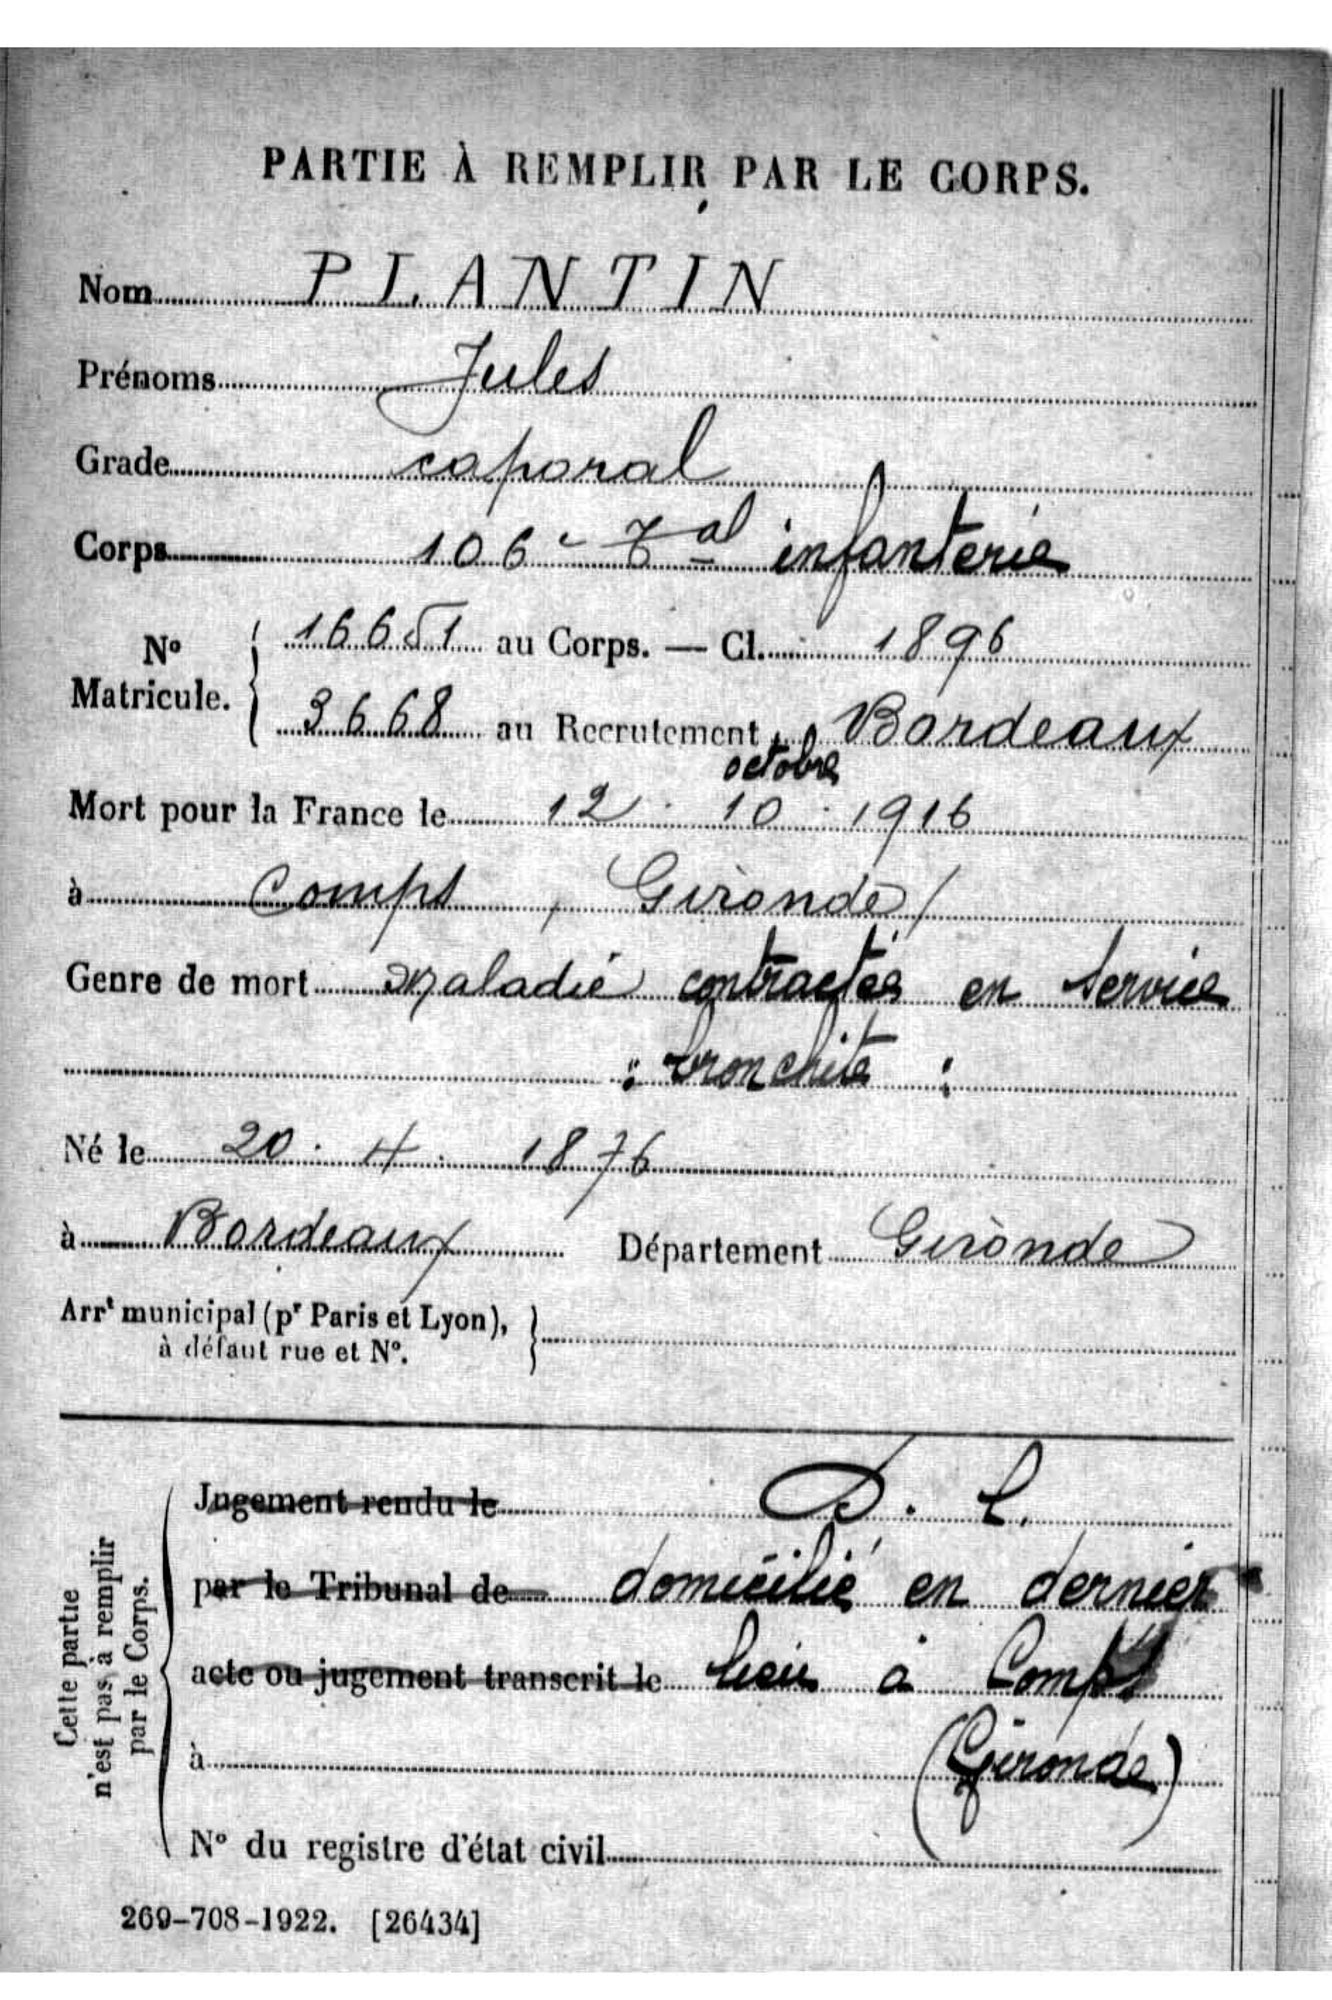 PARTIE À REMPLIR PAR LE CORPS.
Nom PLANTIN
Prénoms Jules
Grade caporal
Corps 106e Tal infanterie
No Matricule. 16651 au Corps. — Cl. 1896
3668 au Recrutement Bordeaux
octobre
Mort pour la France le 12 · 10 · 1916
à Comps, Gironde/
Genre de mort Maladie contractée en service
: bronchite :
Né le 20 · 4 · 1876
à Bordeaux Département Gironde
Arrt municipal (pr Paris et Lyon),
à défaut rue et No.
Cette partie
n'est pas à remplir
par le Corps.
Jugement rendu le D. C.
par le Tribunal de domicilié en dernier
acte ou jugement transcrit le lieu à Comps
à (Gironde)
No du registre d'état civil
269-708-1922. [26434]